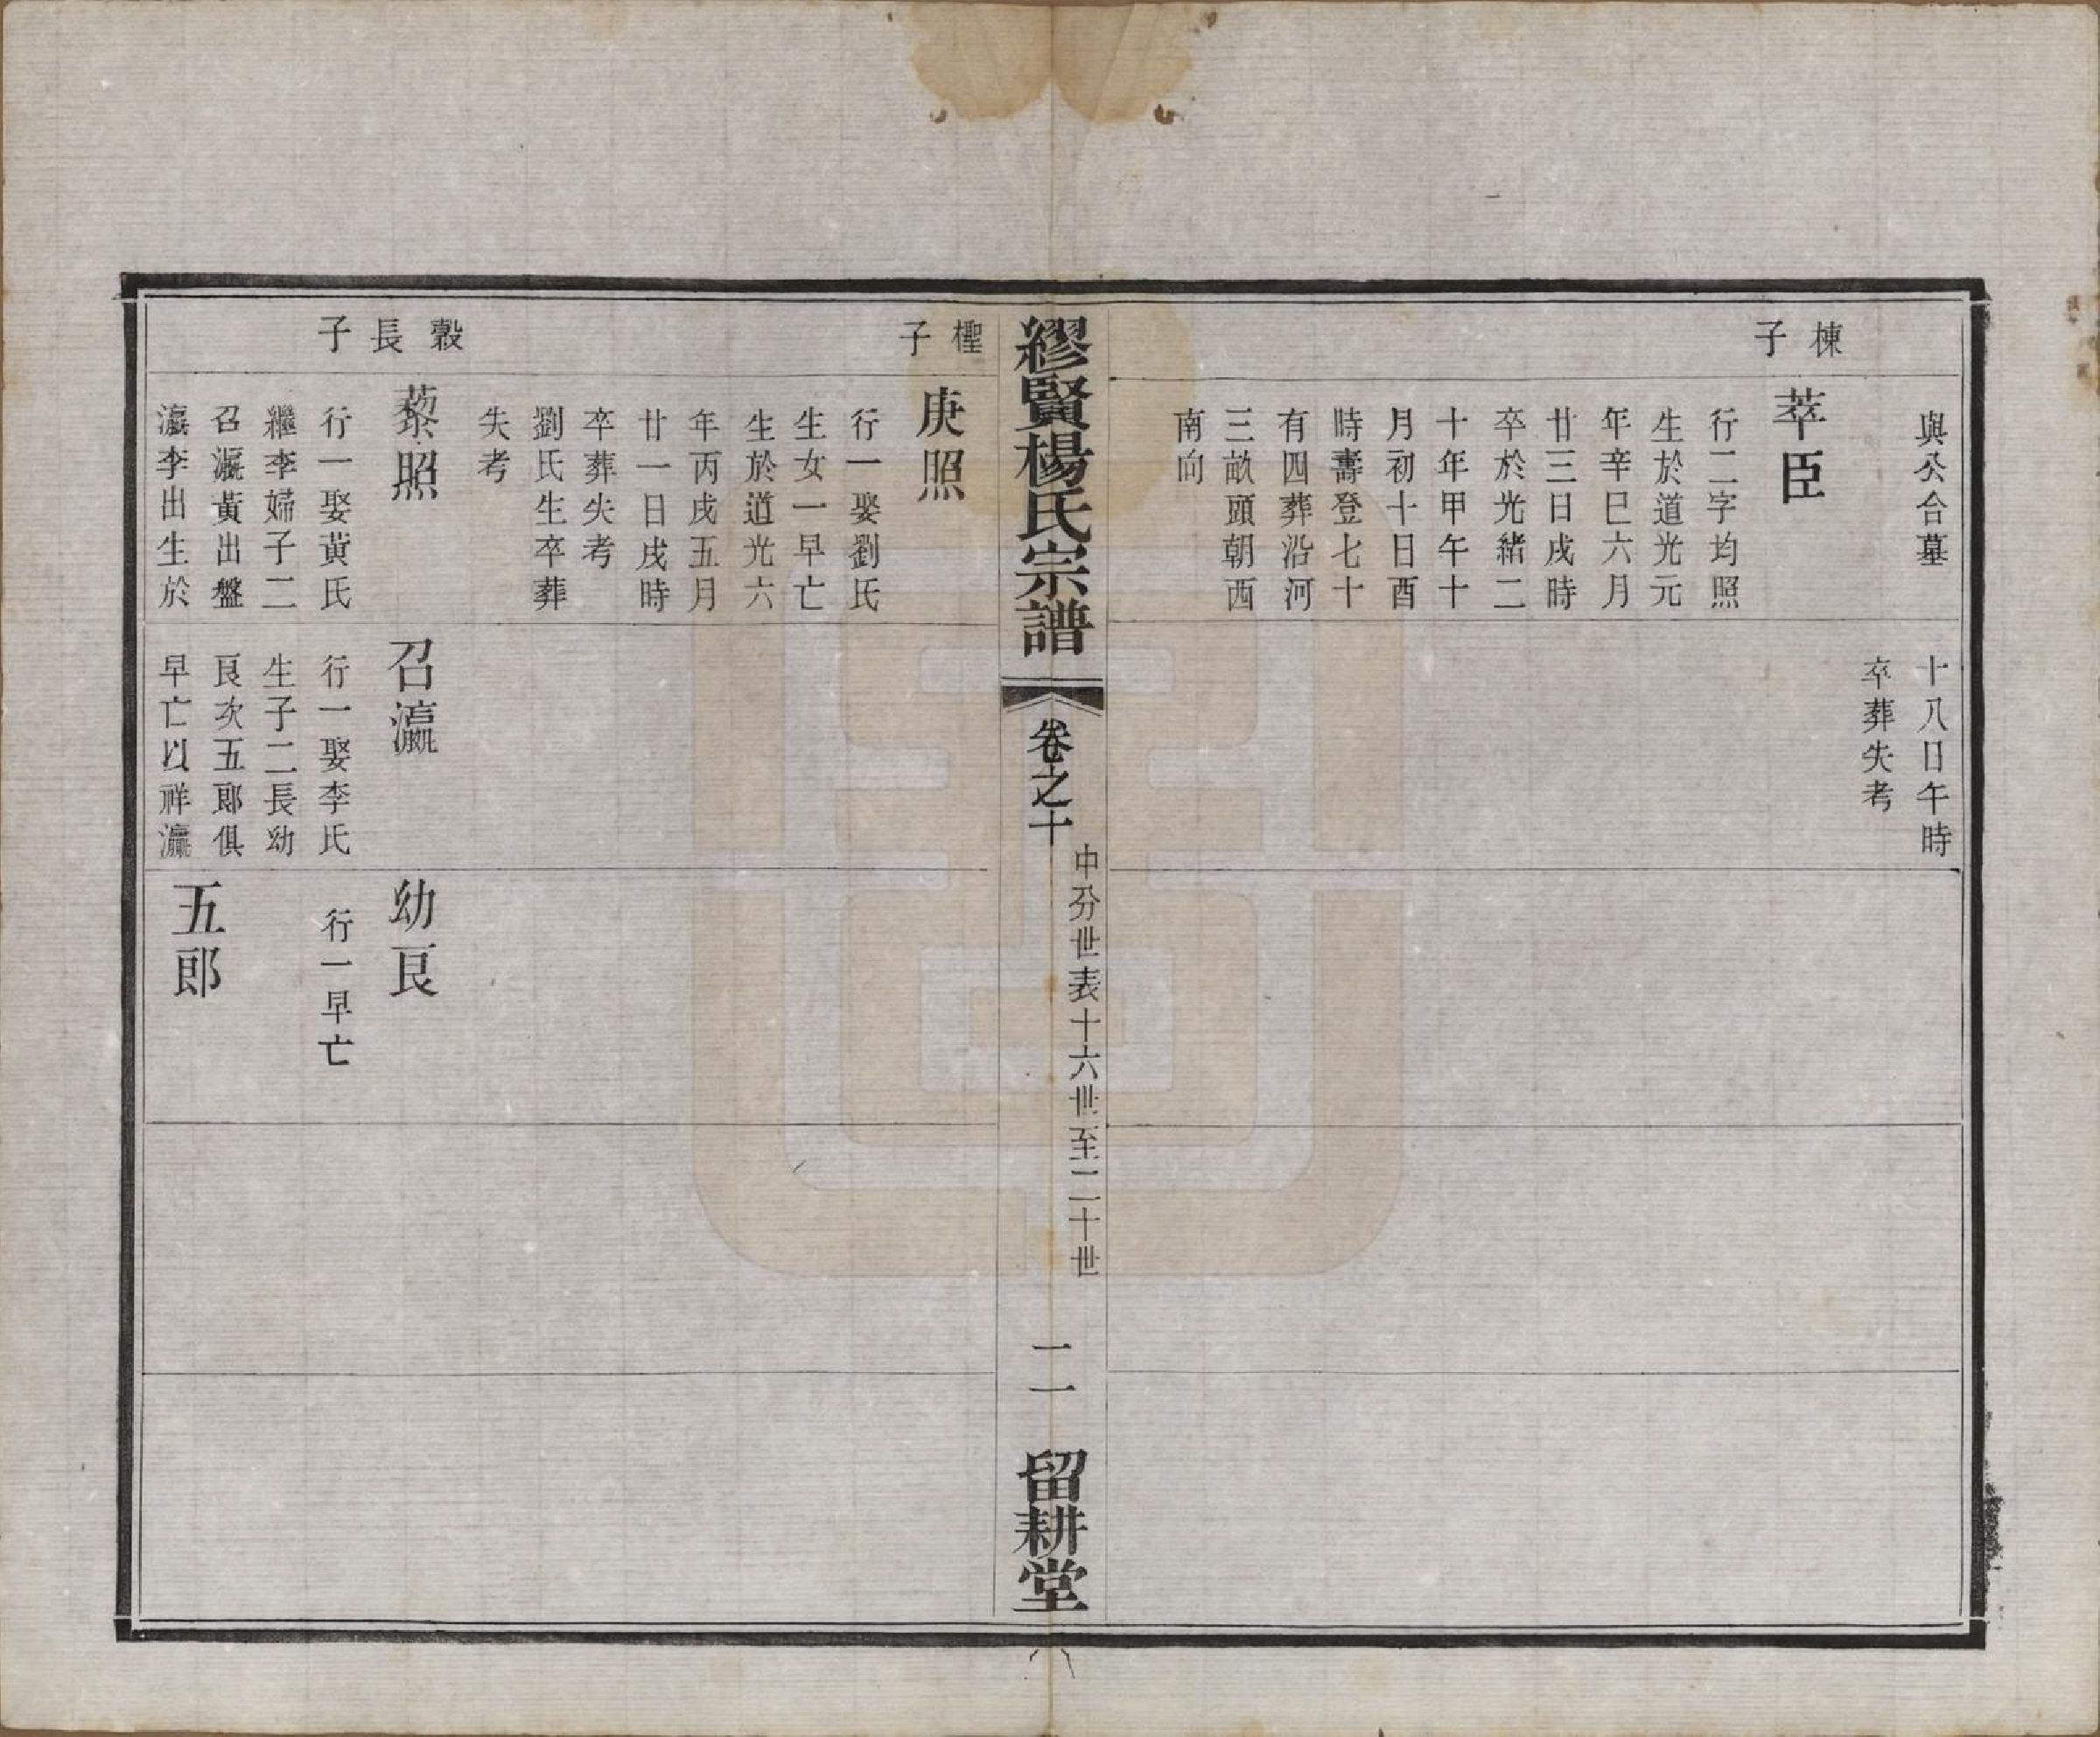 與公合墓
十八日午時
卒葬失考
棟子
萃臣
行二字均照
生於道光元
年辛巳六月
廿三日戌時
卒於光緒二
十年甲午十
月初十日酉
時壽登七十
有四葬沿河
三畝頭朝西
南向
繆賢楊氏宗譜
卷之十
中分世表十六世至二十世
二一
留耕堂
檉子
庚照
行一娶劉氏
生女一早亡
生於道光六
年丙戌五月
廿一日戌時
卒葬失考
劉氏生卒葬
失考
穀長子
藜照
行一娶黃氏
繼李婦子二
召瀛黃出盤
瀛李出生於
召瀛
行一娶李氏
生子二長幼
良次五郎俱
早亡以祥瀛
幼良
行一早亡
五郎